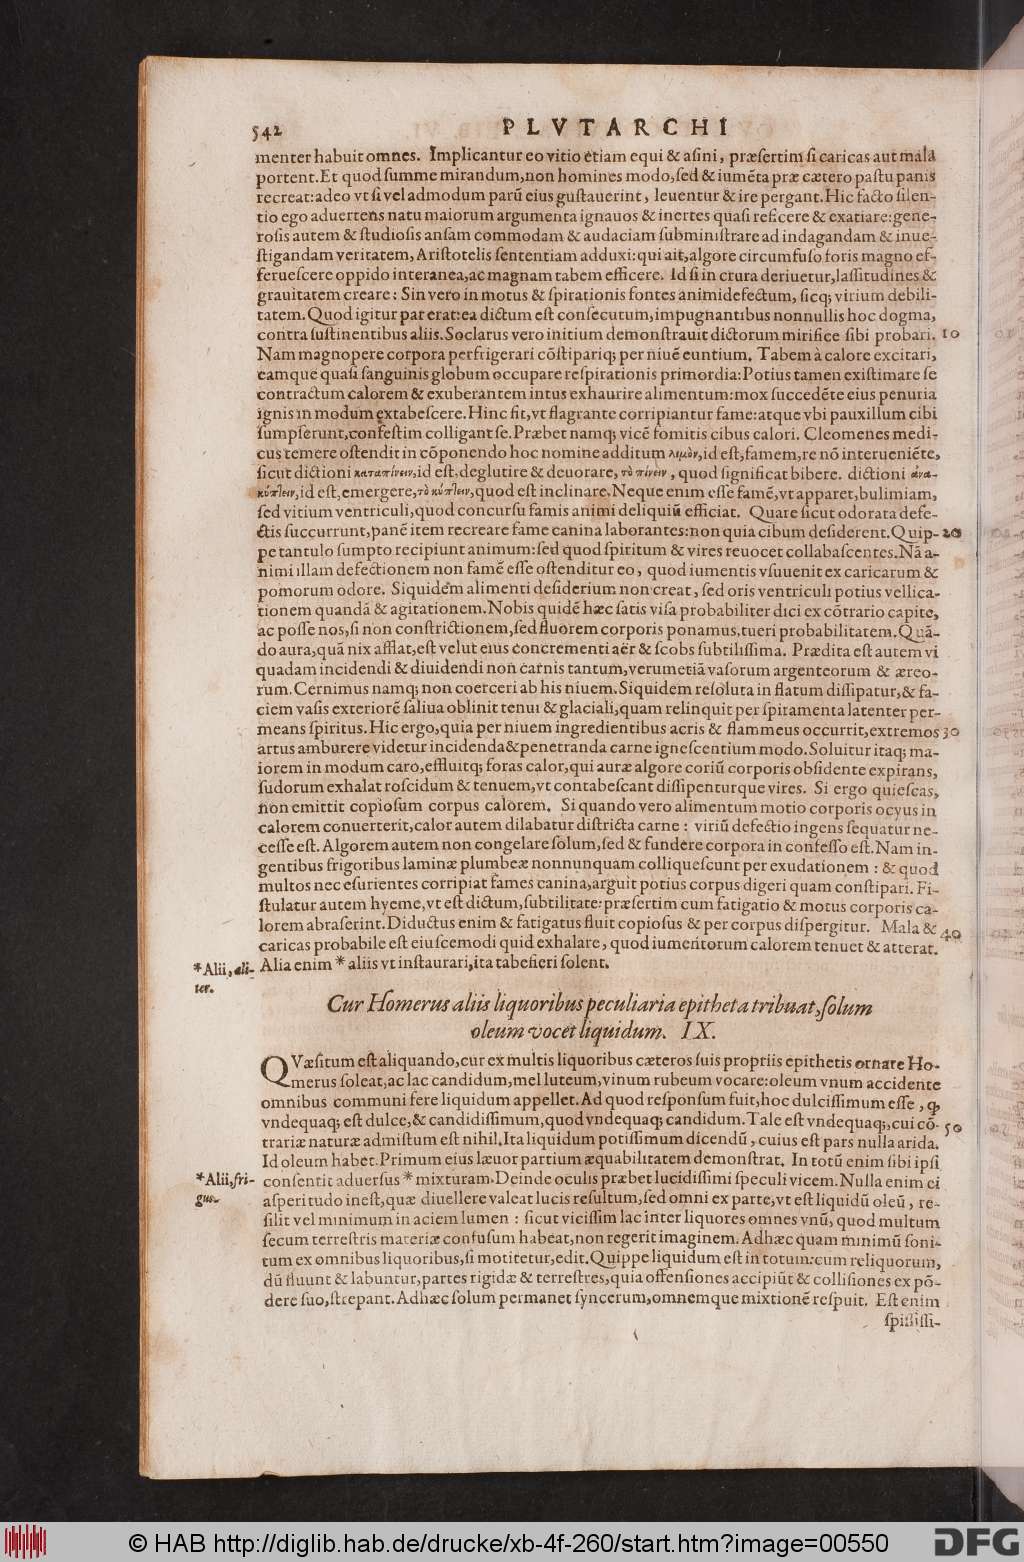 542
PLVTARCHI
menter habuit omnes. Implicantur eo vitio etiam equi & asini, præsertim si caricas aut mala
portent. Et quod summe mirandum, non homines modo, sed & iumẽta præ cætero pastu panis
recreat: adeo vt si vel admodum parũ eius gustauerint, leuentur & ire pergant. Hic facto silen-
tio ego aduertens natu maiorum argumenta ignauos & inertes quasi reficere & exatiare: gene-
rosis autem & studiosis ansam commodam & audaciam subministrare ad indagandam & inue-
stigandam veritatem, Aristotelis sententiam adduxi: qui ait, algore circumfuso foris magno ef-
feruescere oppido interanea, ac magnam tabem efficere. Id si in crura deriuetur, lassitudines &
grauitatem creare: Sin vero in motus & spirationis fontes animi defectum, sicq; virium debili-
tatem. Quod igitur par erat: ea dictum est consecutum, impugnantibus nonnullis hoc dogma,
contra sustinentibus aliis. Soclarus vero initium demonstrauit dictorum mirifice sibi probari. 10
Nam magnopere corpora perfrigerari cõstipariq; per niuẽ euntium. Tabem à calore excitari,
eamque quasi sanguinis globum occupare respirationis primordia: Potius tamen existimare se
contractum calorem & exuberantem intus exhaurire alimentum: mox succedẽte eius penuria
ignis in modum extabescere. Hinc fit, vt flagrante corripiantur fame: atque vbi pauxillum cibi
sumpserunt, confestim colligant se. Præbet namq; vicẽ fomitis cibus calori. Cleomenes medi-
cus temere ostendit in cõponendo hoc nomine additum λιμὸν, id est, famem, re nõ interueniẽte,
sicut dictioni καταπίνειν, id est, deglutire & deuorare, τὸ πίνειν, quod significat bibere. dictioni ἀνα-
κύπτειν, id est, emergere, τὸ κύπτειν, quod est inclinare. Neque enim esse famẽ, vt apparet, bulimiam,
sed vitium ventriculi, quod concursu famis animi deliquiũ efficiat. Quare sicut odorata defe-
ctis succurrunt, panẽ item recreare fame canina laborantes: non quia cibum desiderent. Quip- 20
pe tantulo sumpto recipiunt animum: sed quod spiritum & vires reuocet collabascentes. Nã a-
nimi illam defectionem non famẽ esse ostenditur eo, quod iumentis vsuuenit ex caricarum &
pomorum odore. Siquidem alimenti desiderium non creat, sed oris ventriculi potius vellica-
tionem quandã & agitationem. Nobis quidẽ hæc satis visa probabiliter dici ex cõtrario capite,
ac posse nos, si non constrictionem, sed fluorem corporis ponamus, tueri probabilitatem. Quã-
do aura, quã nix afflat, est velut eius concrementi aër & scobs subtilissima. Prædita est autem vi
quadam incidendi & diuidendi non carnis tantum, verumetiã vasorum argenteorum & æreo-
rum. Cernimus namq; non coerceri ab his niuem. Siquidem resoluta in flatum dissipatur, & fa-
ciem vasis exteriorẽ saliua oblinit tenui & glaciali, quam relinquit per spiramenta latenter per-
means spiritus. Hic ergo, quia per niuem ingredientibus acris & flammeus occurrit, extremos 30
artus amburere videtur incidenda & penetranda carne ignescentium modo. Soluitur itaq; ma-
iorem in modum caro, effluitq; foras calor, qui auræ algore coriũ corporis obsidente expirans,
sudorum exhalat roscidum & tenuem, vt contabescant dissipenturque vires. Si ergo quiescas,
non emittit copiosum corpus calorem. Si quando vero alimentum motio corporis ocyus in
calorem conuerterit, calor autem dilabatur districta carne: viriũ defectio ingens sequatur ne-
cesse est. Algorem autem non congelare solum, sed & fundere corpora in confesso est. Nam in-
gentibus frigoribus laminæ plumbeæ nonnunquam colliquescunt per exudationem: & quod
multos nec esurientes corripiat fames canina, arguit potius corpus digeri quam constipari. Fi-
stulatur autem hyeme, vt est dictum, subtilitate: præsertim cum fatigatio & motus corporis ca-
lorem abraserint. Diductus enim & fatigatus fluit copiosus & per corpus dispergitur. Mala & 40
caricas probabile est eiuscemodi quid exhalare, quod iumentorum calorem tenuet & atterat.
Alia enim * aliis vt instaurari, ita tabefieri solent.
*Alii, ali-
ter.
Cur Homerus aliis liquoribus peculiaria epitheta tribuat, solum
oleum vocet liquidum. IX.
QVæsitum est aliquando, cur ex multis liquoribus cæteros suis propriis epithetis ornare Ho-
merus soleat, ac lac candidum, mel luteum, vinum rubeum vocare: oleum vnum accidente
omnibus communi fere liquidum appellet. Ad quod responsum fuit, hoc dulcissimum esse, q̃
vndequaq; est dulce, & candidissimum, quod vndequaq; candidum. Tale est vndequaq;, cui cõ- 50
trariæ naturæ admistum est nihil. Ita liquidum potissimum dicendũ, cuius est pars nulla arida.
Id oleum habet. Primum eius læuor partium æquabilitatem demonstrat. In totũ enim sibi ipsi
consentit aduersus * mixturam. Deinde oculis præbet lucidissimi speculi vicem. Nulla enim ei
*Alii, fri-
gus.
asperitudo inest, quæ diuellere valeat lucis resultum, sed omni ex parte, vt est liquidũ oleũ, re-
silit vel minimum in aciem lumen: sicut vicissim lac inter liquores omnes vnũ, quod multum
secum terrestris materiæ confusum habeat, non regerit imaginem. Adhæc quam minimũ soni-
tum ex omnibus liquoribus, si motitetur, edit. Quippe liquidum est in totum: cum reliquorum,
dũ fluunt & labuntur, partes rigidæ & terrestres, quia offensiones accipiũt & collisiones ex põ-
dere suo, strepant. Adhæc solum permanet syncerum, omnemque mixtionẽ respuit. Est enim
spississi-
© HAB http://diglib.hab.de/drucke/xb-4f-260/start.htm?image=00550
DFG